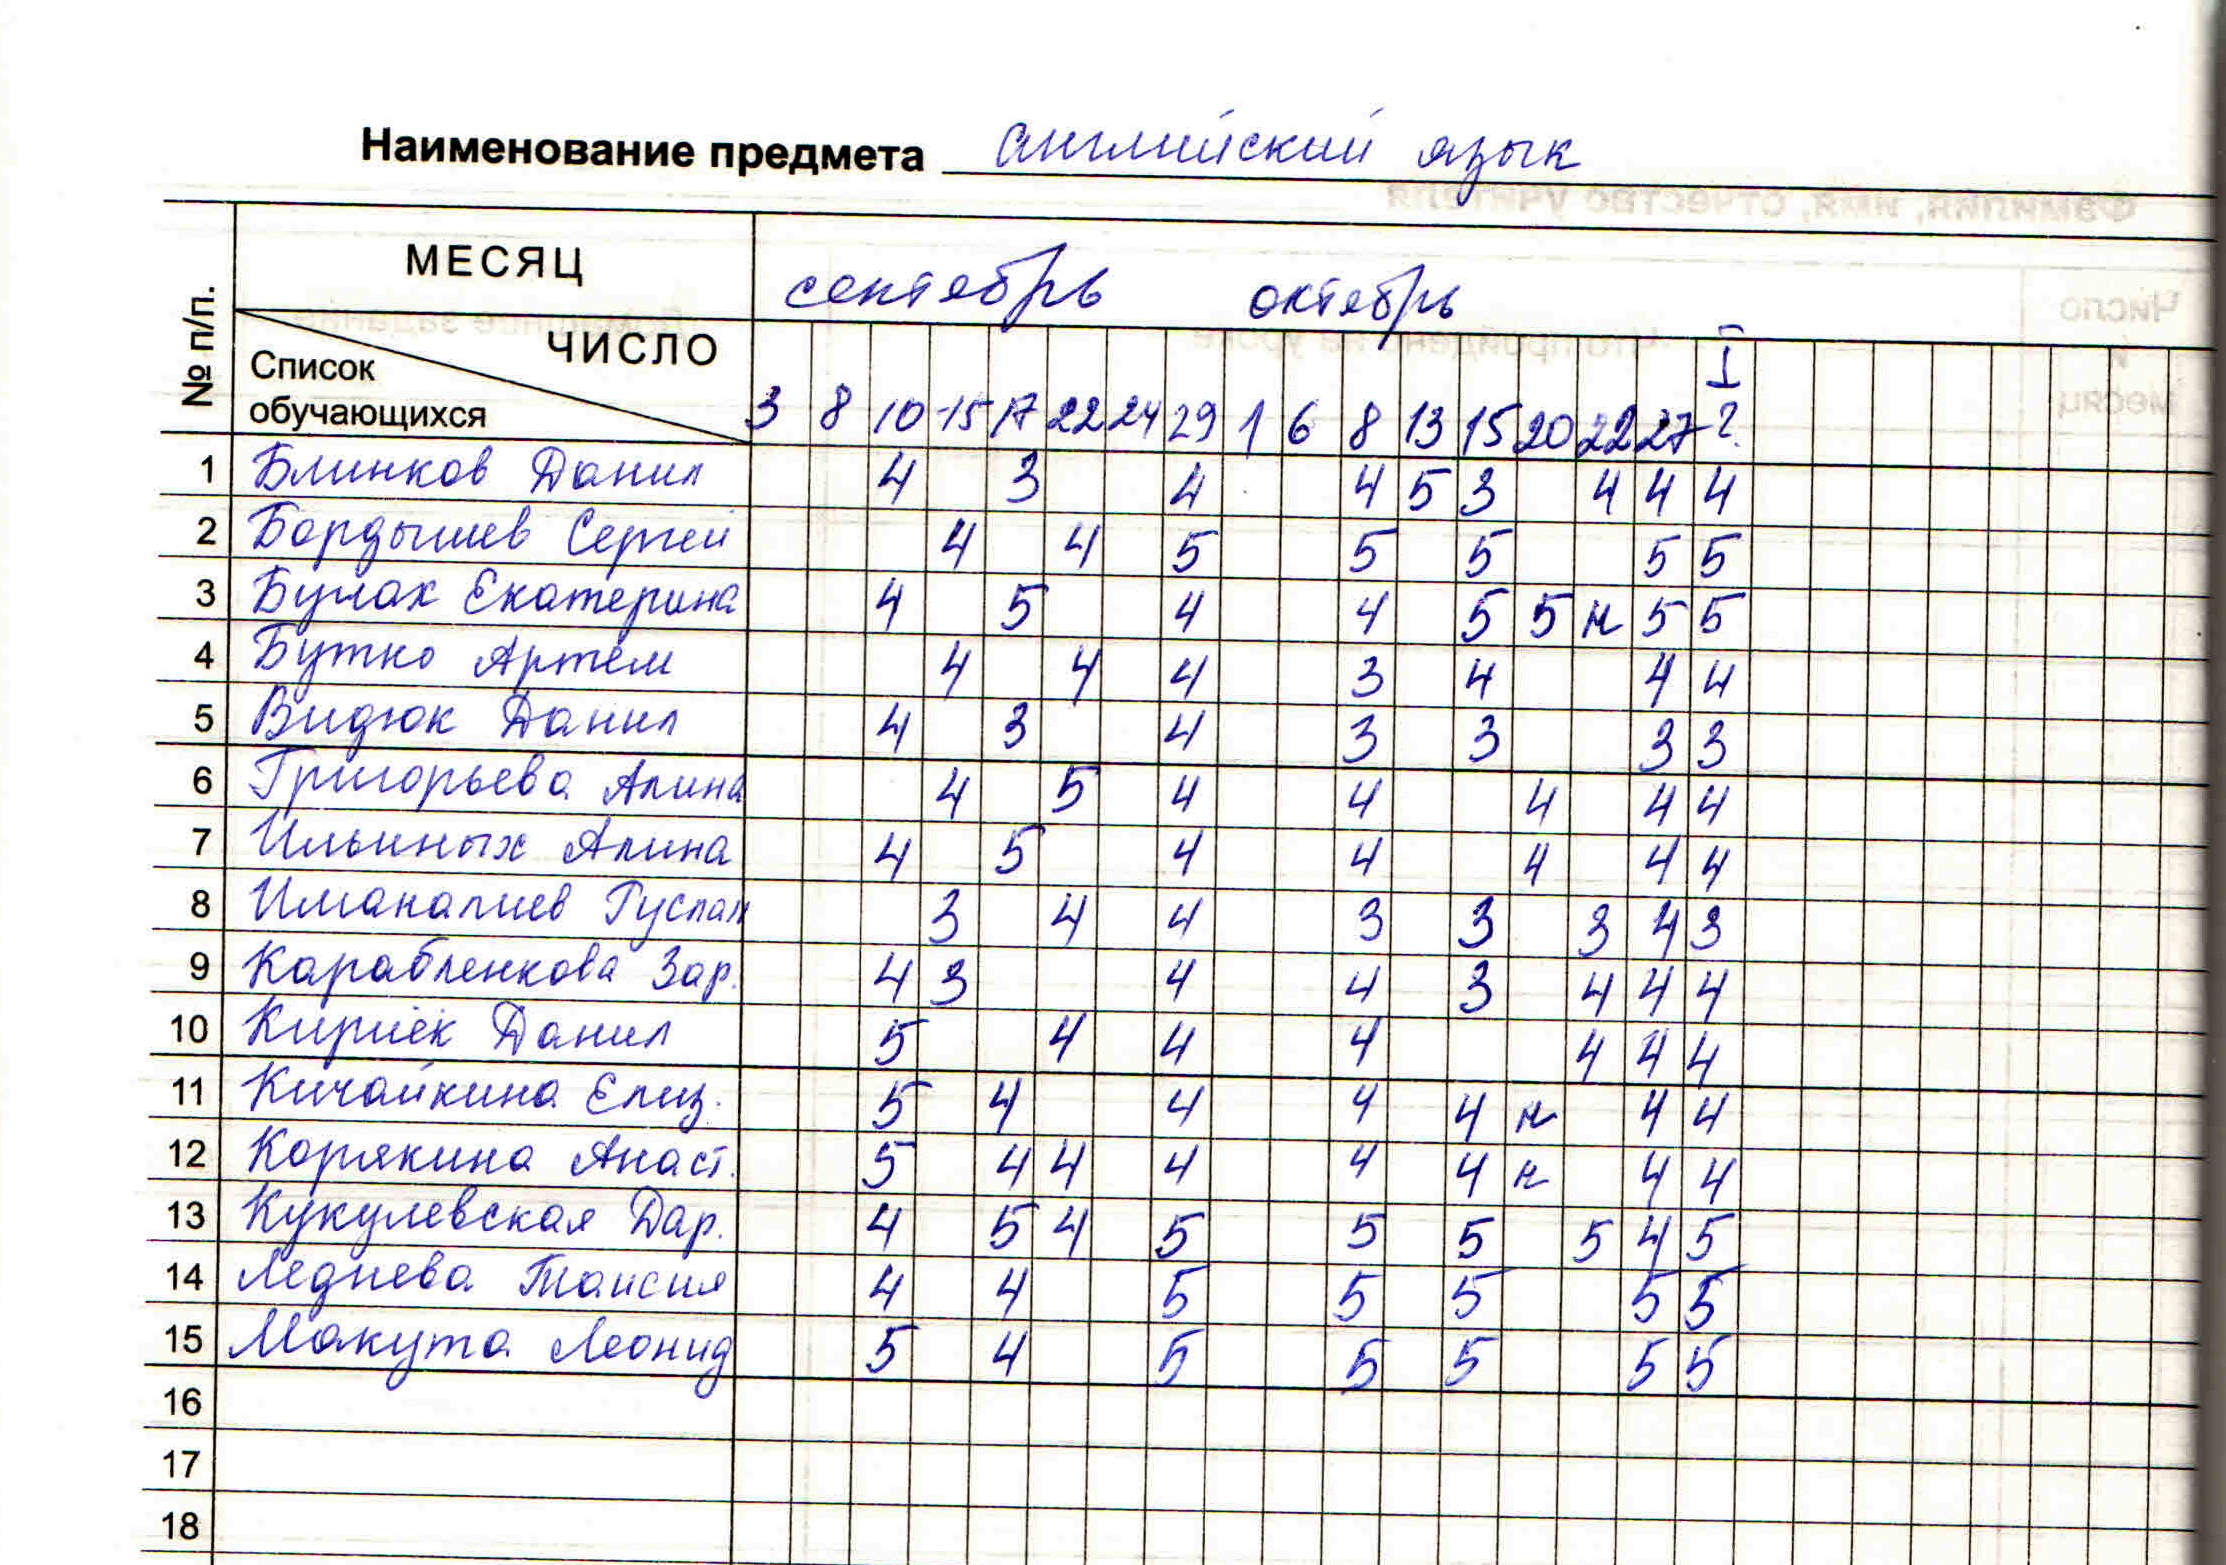 Наименование предмета английский язык
МЕСЯЦ сентябрь октябрь
№ п/п. Список обучающихся ЧИСЛО 3 8 10 15 17 22 24 29 1 6 8 13 15 20 22 27 I ч.
1 Блинков Данил 4 3 4 4 5 3 4 4 4
2 Бордышев Сергей 4 4 5 5 5 5 5
3 Булах Екатерина 4 5 4 4 5 5 н 5 5
4 Бутко Артём 4 4 4 3 4 4 4
5 Видюк Данил 4 3 4 3 3 3 3
6 Григорьева Алина 4 5 4 4 4 4 4
7 Ильиных Алина 4 5 4 4 4 4 4
8 Иманалиев Руслан 3 4 4 3 3 3 4 3
9 Карабленкова Зар. 4 3 4 4 3 4 4 4
10 Кириёк Данил 5 4 4 4 4 4 4
11 Кичайкина Елиз. 5 4 4 4 4 н 4 4
12 Корякина Анаст. 5 4 4 4 4 4 н 4 4
13 Кукулевская Дар. 4 5 4 5 5 5 5 4 5
14 Леднева Таисия 4 4 5 5 5 5 5
15 Макута Леонид 5 4 5 5 5 5 5
16
17
18